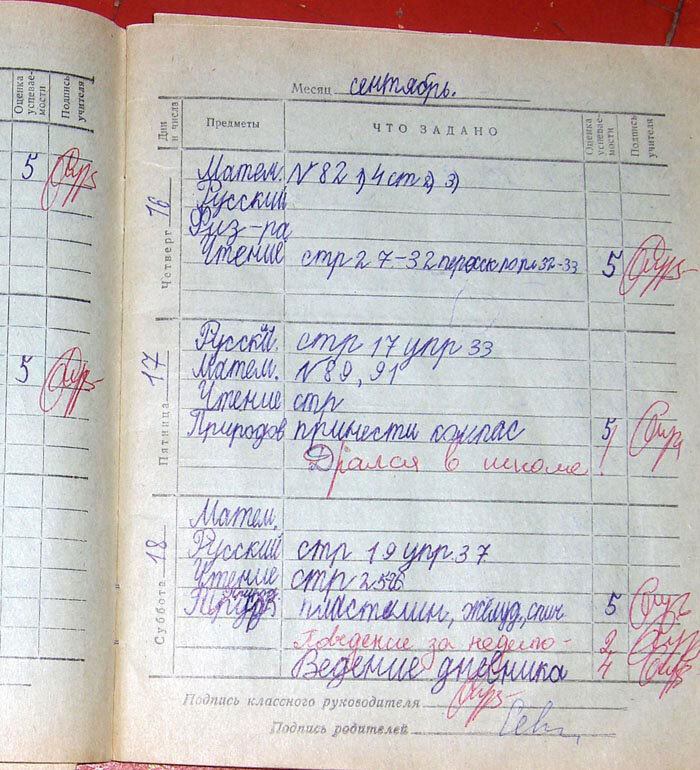 Оценка успевае-мости
Подпись учителя
5
5
Месяц сентябрь.
Дни и числа
Предметы
ЧТО ЗАДАНО
Оценка успевае-мости
Подпись учителя
Четверг 16
Матем. №82 1) 4 ст 2) 3)
Русский
Физ-ра
Чтение стр 27-32 32-33 5
Пятница 17
Русский. стр 17 упр 33
Матем. №89, 91
Чтение стр
Природов принести компас 5
Дрался в школе!
Суббота 18
Матем.
Русский стр 19 упр 37
Чтение стр
пластелин, жёлуд, спич 5
Поведение за неделю - 2
Ведение дневника 4
Подпись классного руководителя
Подпись родителей